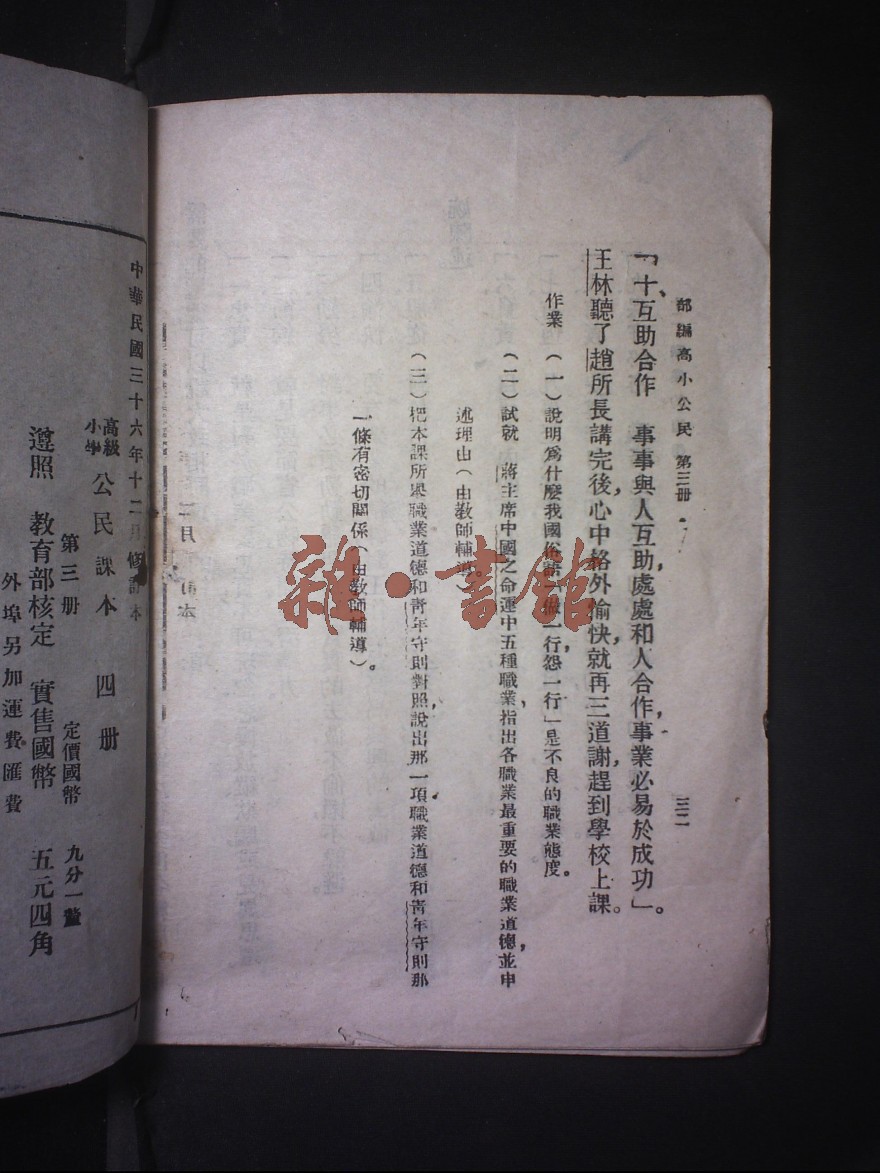 部編高小公民 第三冊
三二
「十、互助合作 事事與人互助，處處和人合作，事業必易於成功」。
王林聽了趙所長講完後，心中格外愉快，就再三道謝，趕到學校上課。
作業 (一) 說明爲什麼我國俗語「做一行，怨一行」是不良的職業態度。
(二) 試就 蔣主席中國之命運中五種職業，指出各職業最重要的職業道德，並申
述理由(由教師輔導)。
(三) 把本課所舉職業道德和靑年守則對照，說出那一項職業道德和靑年守則那
一條有密切關係(由教師輔導)。
中華民國三十六年十二月修訂本
高級小學 公民課本 四册
第三册 定價國幣 九分一釐
遵照 教育部核定 實售國幣 五元四角
外埠另加運費匯費
雜·書館